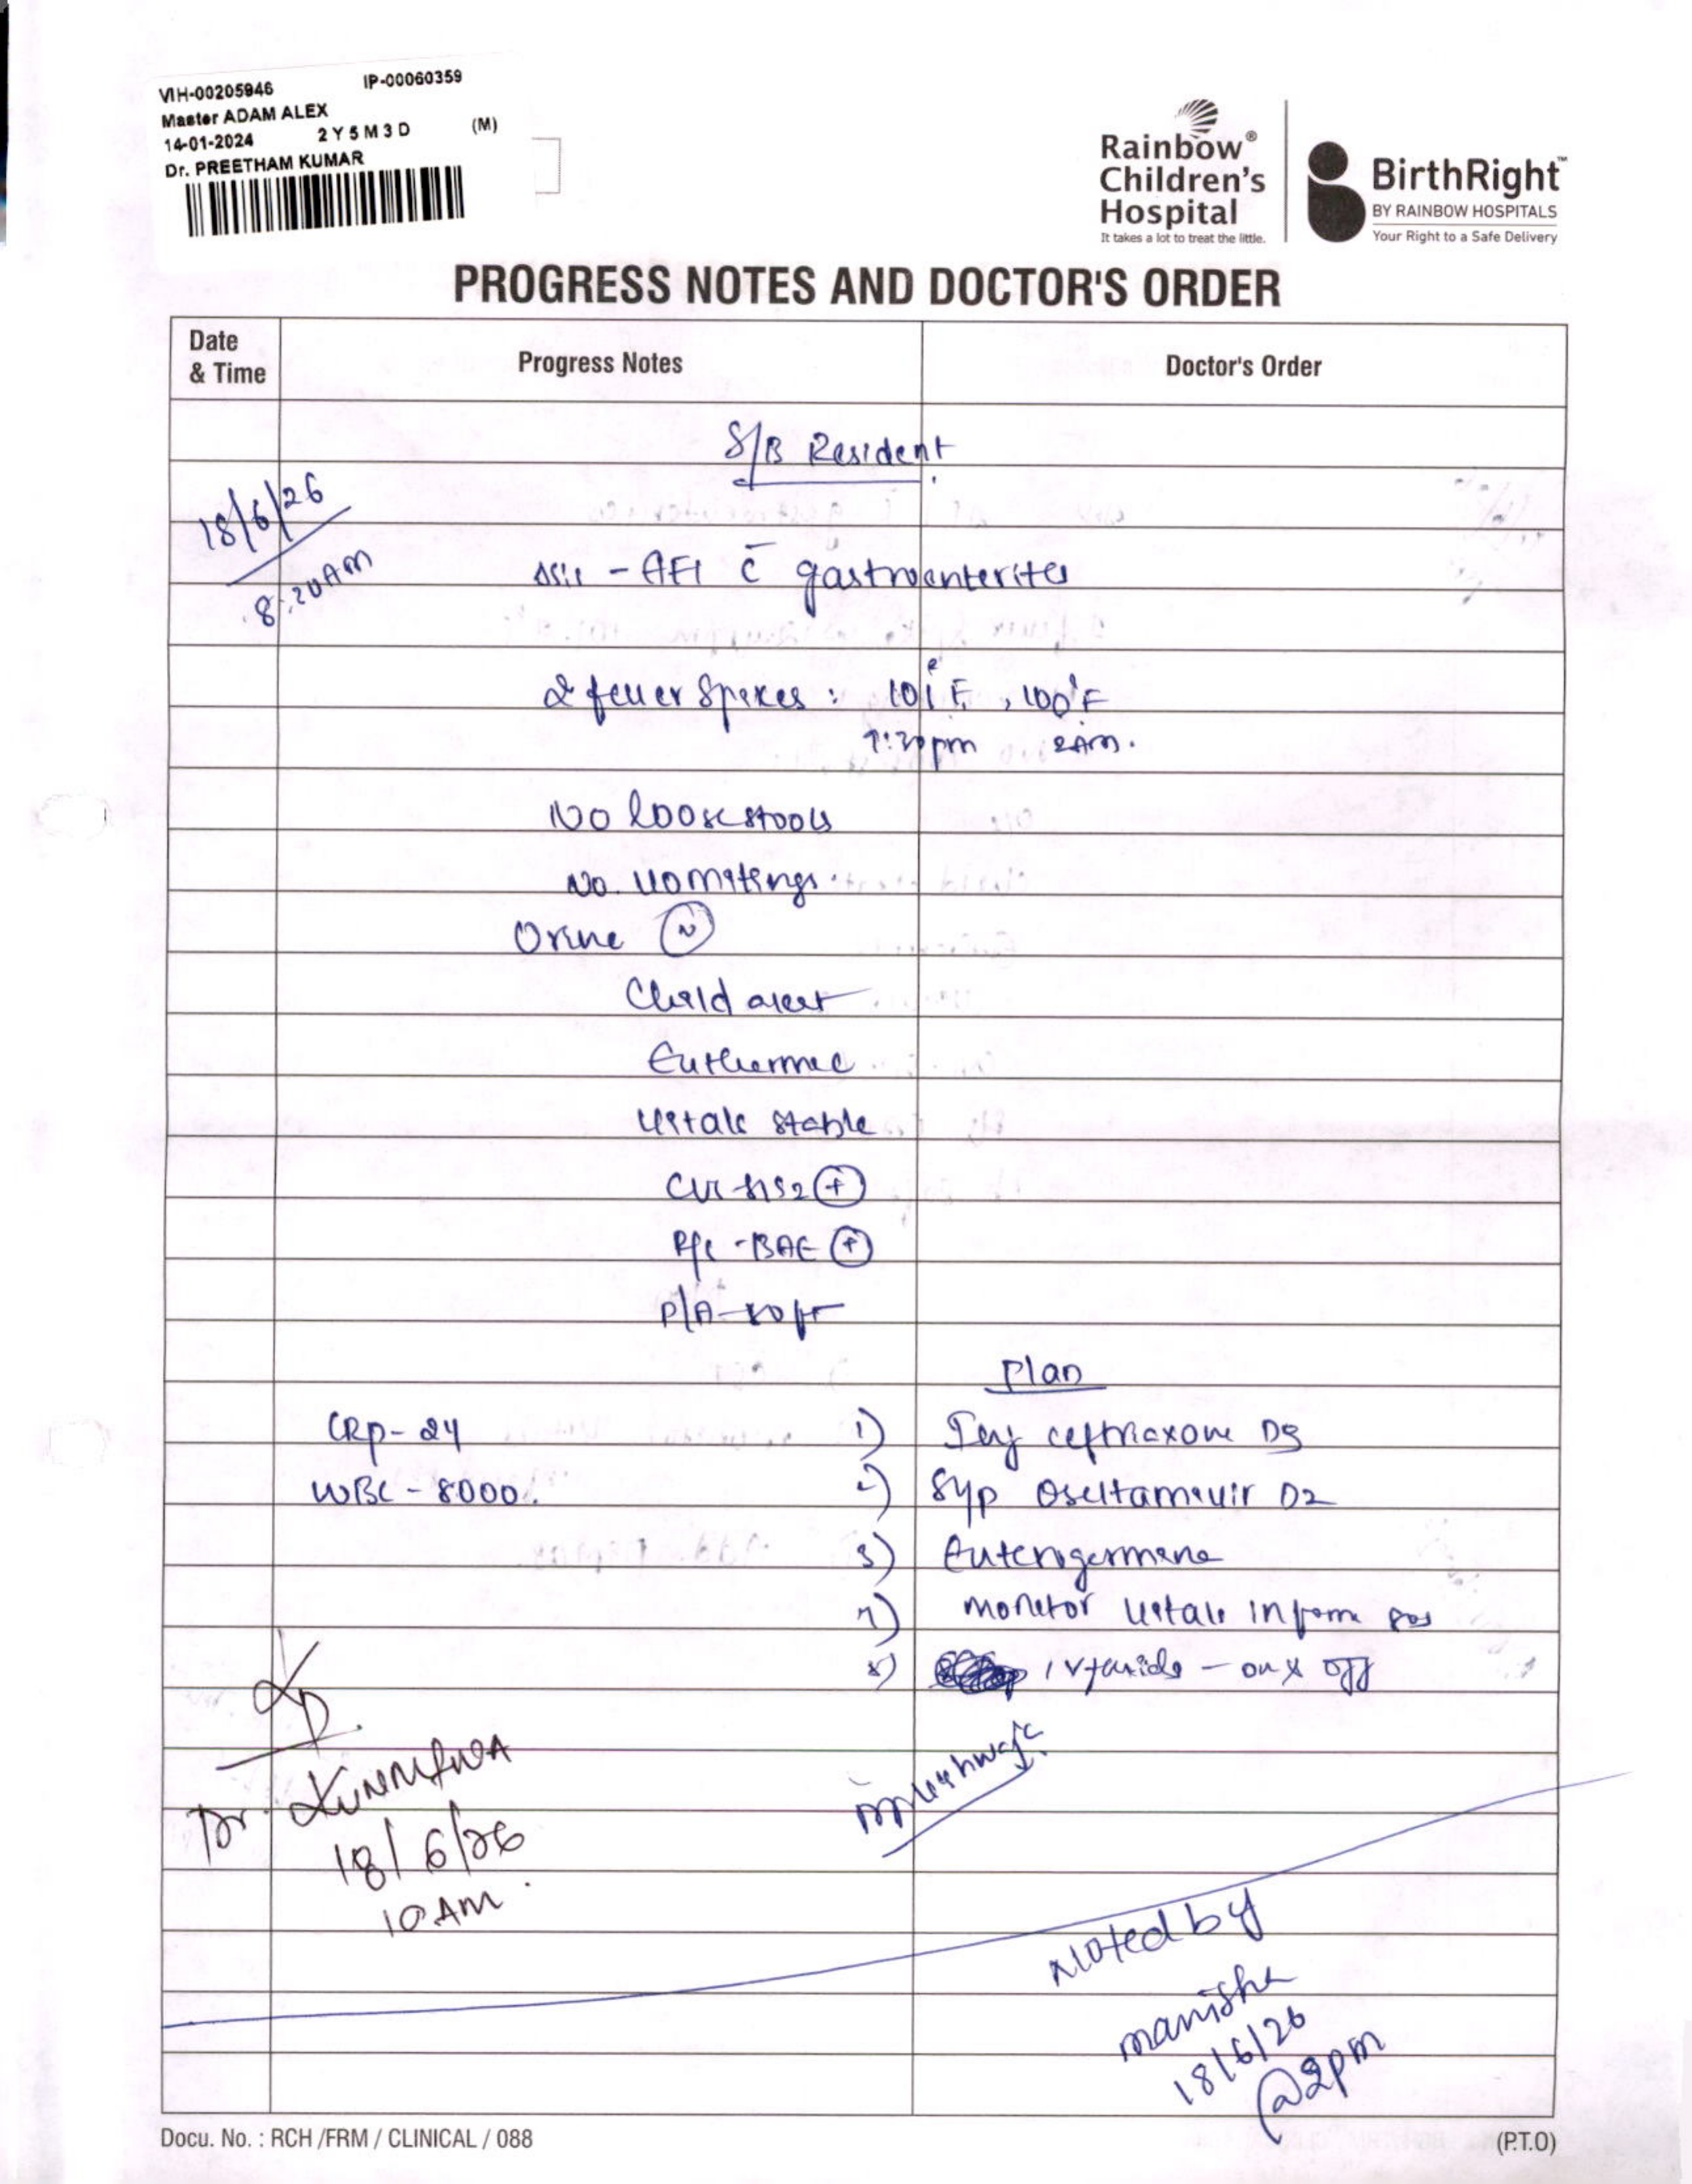 VIH-00205946 IP-00060359
Master ADAM ALEX
14-01-2024 2 Y 5 M 3 D (M)
Dr. PREETHAM KUMAR
Rainbow®
Children's
Hospital
It takes a lot to treat the little.
BirthRight™
BY RAINBOW HOSPITALS
Your Right to a Safe Delivery
PROGRESS NOTES AND DOCTOR'S ORDER
Date
& Time
Progress Notes
Doctor's Order
S/B Resident
18/6/26
8:20AM
- AFI c̄ gastroenterites
2 fever Spikes : 101°F, 100°F
pm 2AM.
NO loose stools
No. vomitings.
Urine (N)
Child alert
Euthermic
Vitals stable
CVS - S1S2 (+)
R/S - BAE (+)
P/A - soft
Plan
CRP - 24
WBC - 8000.
1) Inj ceftriaxone
2) Syp Oseltamivir D2
3) Enterogermina
4) Monitor vitals inform sos
5) IV fluids - on & off
Dr.
18/6/26
10 AM.
Noted by
manisha
18/6/26
@2pm
Docu. No. : RCH /FRM / CLINICAL / 088
(P.T.O)